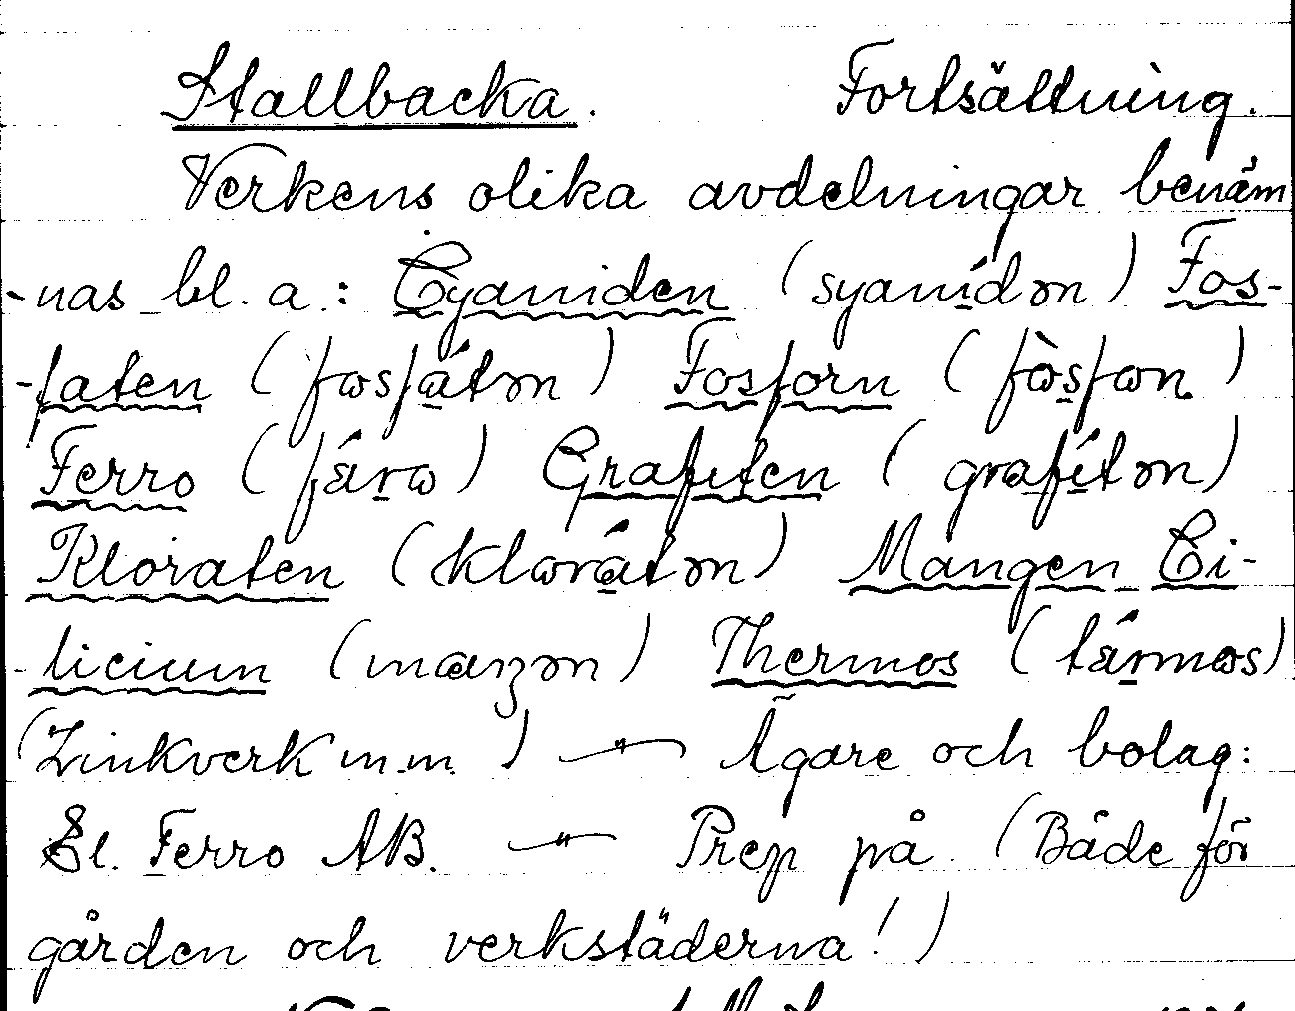 Stallbacka. Fortsättning.
Verkens olika avdelningar benäm
-nas bl. a.: Cyaniden (syanídən) Fos-
-faten (fɷsfátən) Fosforn (fɷ̀sfɷn)
Ferro (fä́rɷ) Grafiten (grafítən)
Kloraten (klɷrátən) Mangen Ci-
-licium (maŋən) Thermos (tä́rmɷs)
(Zinkverk m.m.) —〃— Ägare och bolag:
El. Ferro AB. —〃— Prep på. (Både för
gården och verkstäderna!)